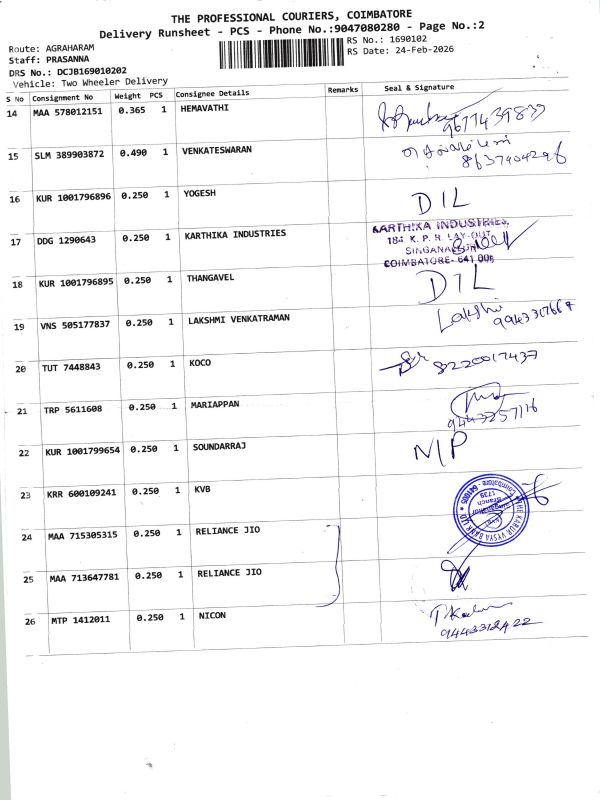 THE PROFESSIONAL COURIERS, COIMBATORE
Delivery Runsheet - PCS - Phone No.:9047080280 - Page No.:2
Route: AGRAHARAM
RS No.: 1690102
Staff: PRASANNA
RS Date: 24-Feb-2026
DRS No.: DCJB169010202
Vehicle: Two Wheeler Delivery
S No Consignment No Weight PCS Consignee Details Remarks Seal & Signature
14 MAA 578012151 0.365 1 HEMAVATHI 9677439839
15 SLM 389903872 0.490 1 VENKATESWARAN 8637404296
16 KUR 1001796896 0.250 1 YOGESH DIL
17 DDG 1290643 0.250 1 KARTHIKA INDUSTRIES KARTHIKA INDUSTRIES,
184 K. P. R. LAY-OUT,
SINGANALLUR
COIMBATORE- 641 005
18 KUR 1001796895 0.250 1 THANGAVEL DIL
19 VNS 505177837 0.250 1 LAKSHMI VENKATRAMAN Lakshi
20 TUT 7448843 0.250 1 KOCO 8220017437
21 TRP 5611608 0.250 1 MARIAPPAN 9443257116
22 KUR 1001799654 0.250 1 SOUNDARRAJ N/P
23 KRR 600109241 0.250 1 KVB THE KARUR VYSYA BANK LTD
Branch
1739
Coimbatore - 641005
24 MAA 715305315 0.250 1 RELIANCE JIO
25 MAA 713647781 0.250 1 RELIANCE JIO
26 MTP 1412011 0.250 1 NICON
9443312422